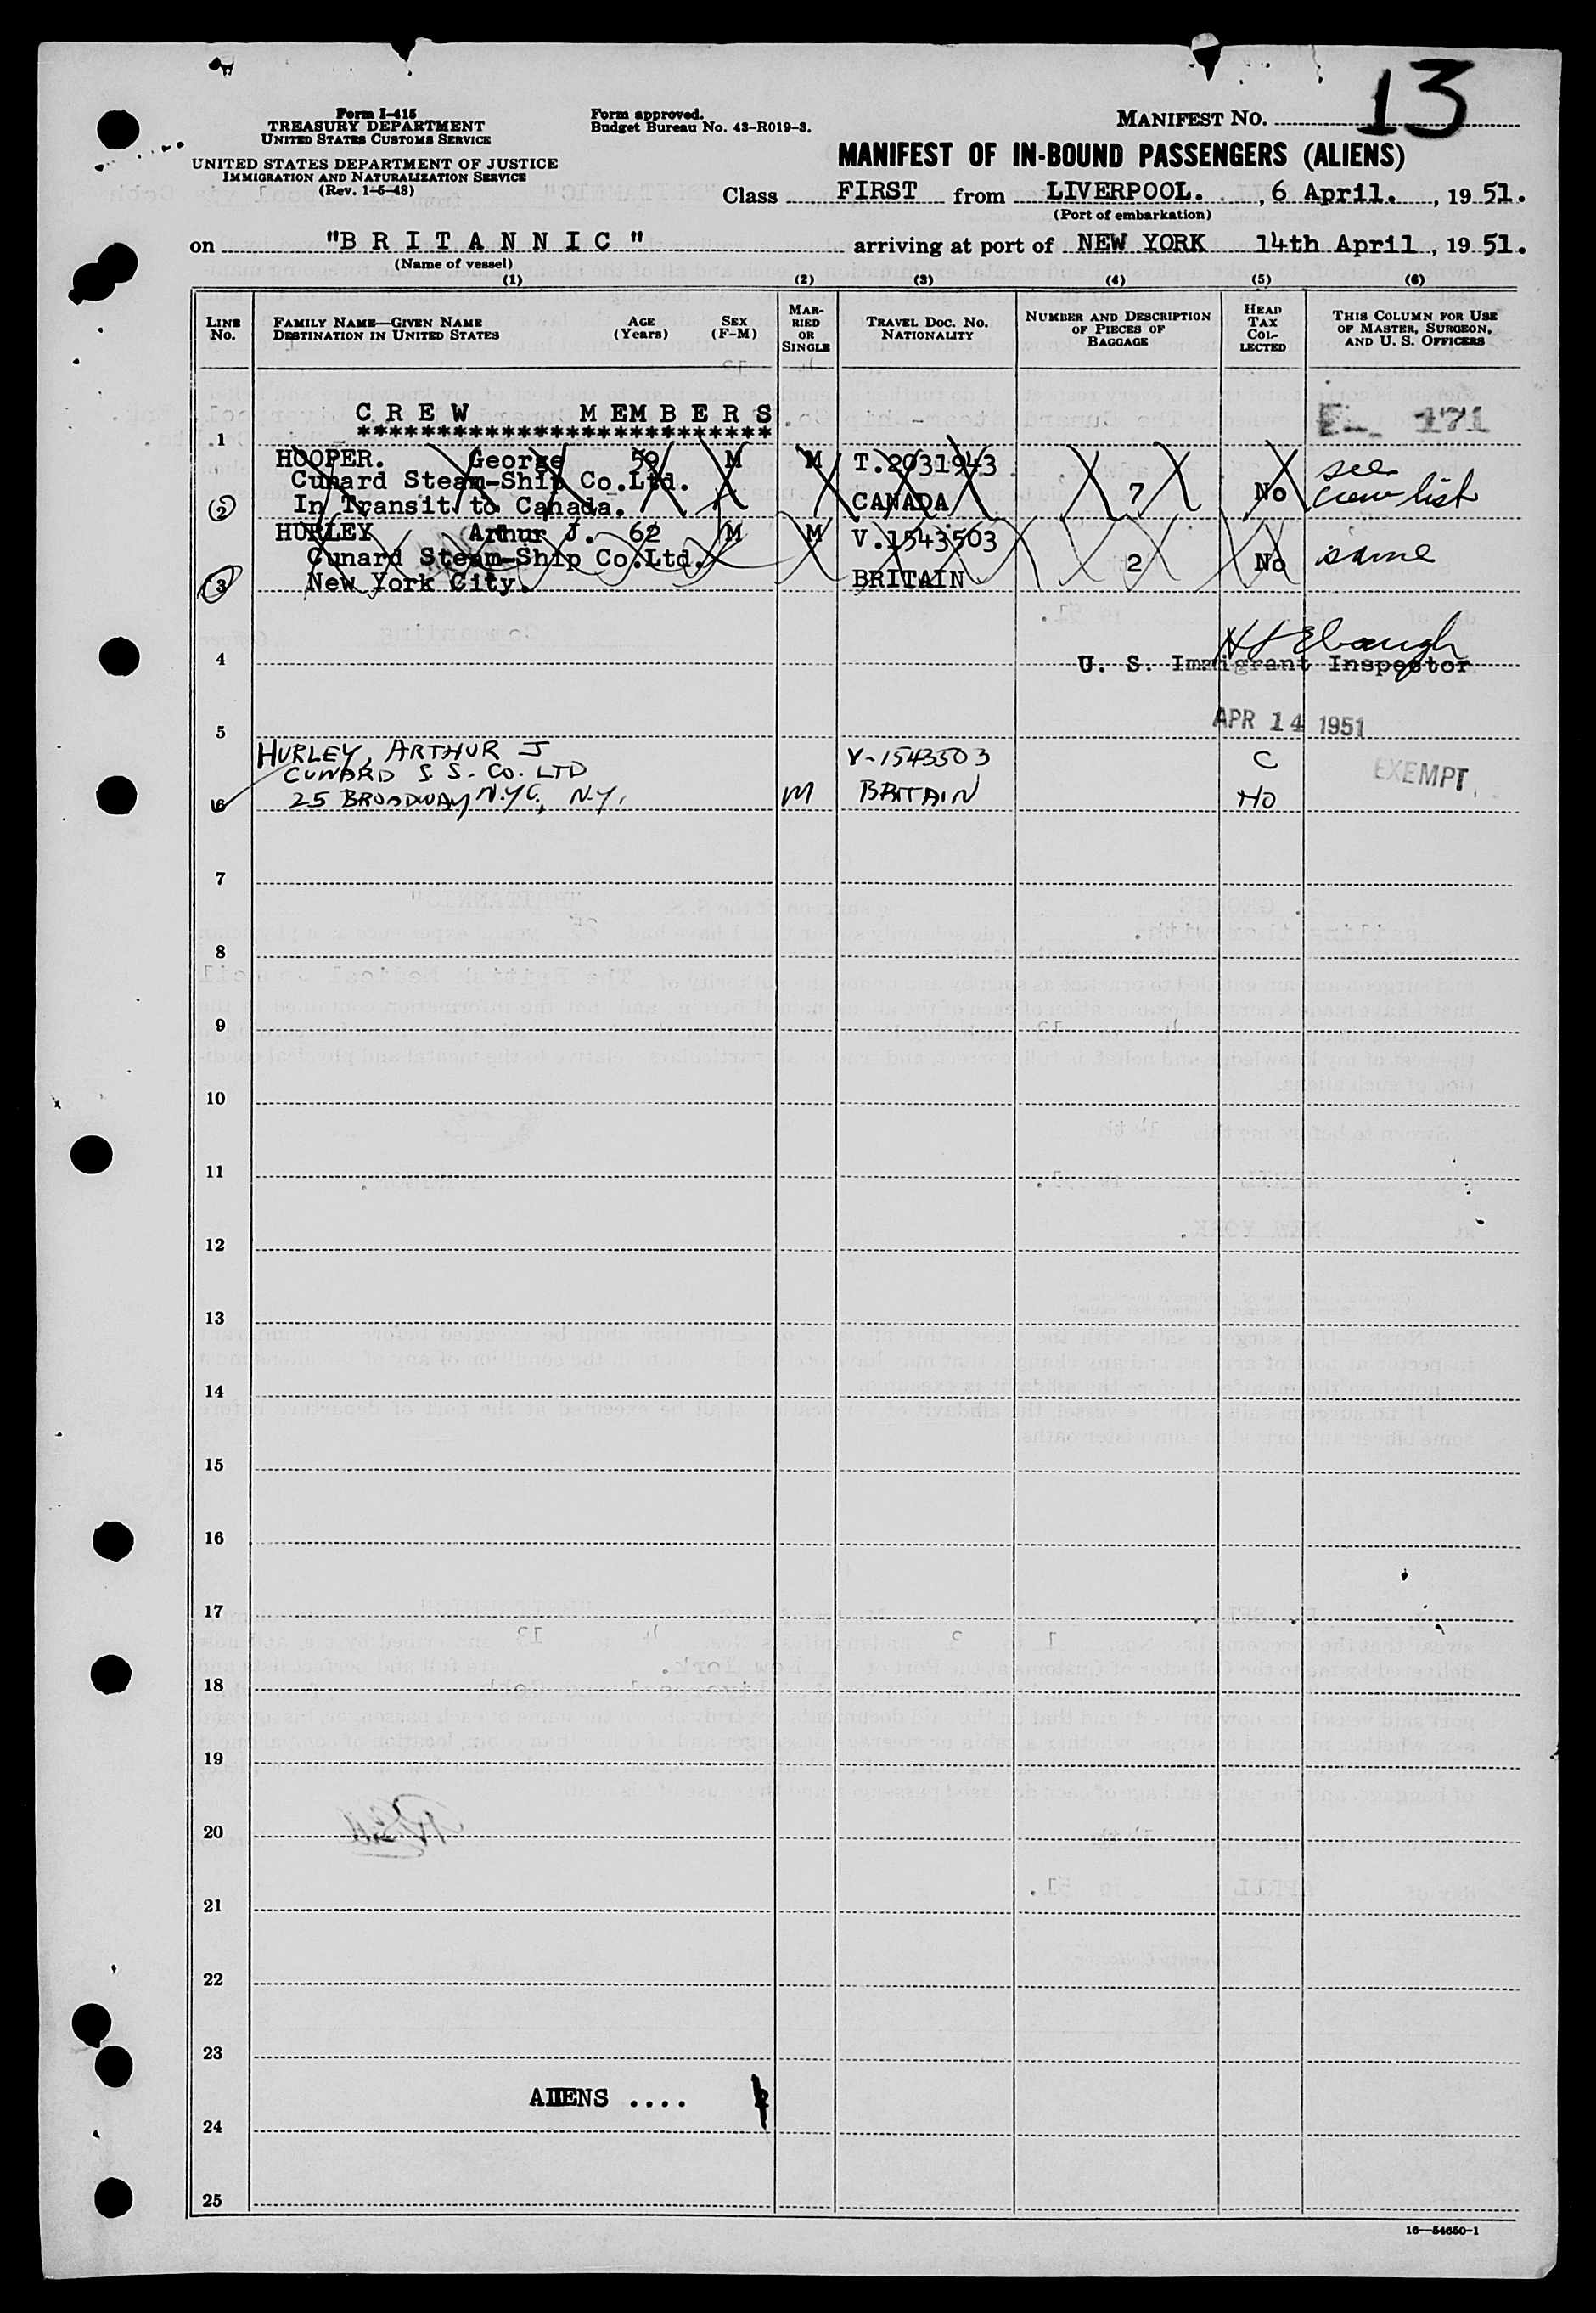 13
Form I-415
TREASURY DEPARTMENT
UNITED STATES CUSTOMS SERVICE
Form approved.
Budget Bureau No. 43-R019-3.
MANIFEST NO.
UNITED STATES DEPARTMENT OF JUSTICE
IMMIGRATION AND NATURALIZATION SERVICE
(Rev. 1-5-48)
MANIFEST OF IN-BOUND PASSENGERS (ALIENS)
Class FIRST from LIVERPOOL. , 6 April. , 19 51.
(Port of embarkation)
on "B R I T A N N I C" arriving at port of NEW YORK 14th April , 19 51.
(Name of vessel)
(1) (2) (3) (4) (5) (6)
LINE No.
FAMILY NAME—GIVEN NAME
DESTINATION IN UNITED STATES
AGE (Years)
SEX (F-M)
MAR-RIED OR SINGLE
TRAVEL DOC. NO. NATIONALITY
NUMBER AND DESCRIPTION OF PIECES OF BAGGAGE
HEAD TAX COL-LECTED
THIS COLUMN FOR USE OF MASTER, SURGEON, AND U. S. OFFICERS
C R E W M E M B E R S
**************************
171
1
HOOPER. George 59 M M T.2031943 see
Cunard Steam-Ship Co.Ltd. 7 No crew list
2 In Transit to Canada. CANADA
HURLEY Arthur J. 62 M M V.1543503
Cunard Steam-Ship Co.Ltd. 2 No same
3 New York City. BRITAIN
4 U. S. Immigrant Inspector
APR 14 1951
5
HURLEY, ARTHUR J V-1543503 C
CUNARD S. S. CO. LTD EXEMPT
6 25 BROADWAY N.Y.C., N.Y. M BRITAIN No
7
8
9
10
11
12
13
14
15
16
17
18
19
20
21
22
23
ALIENS ....
24
25
16—54650-1